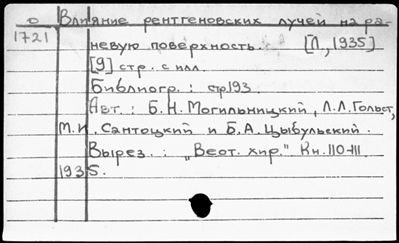 о Влияние рентгеновских лучей на ра-
1721 невую поверхность. [Л., 1935]
[9] стр. с илл.
Библиогр.: стр.193.
Авт.: Б.Н. Могильницкий, Л.Л. Гольст,
М.И. Сантоцкий и Б.А. Цыбульский.
Вырез.: „Вест. хир." Кн. 110-111.
1935.